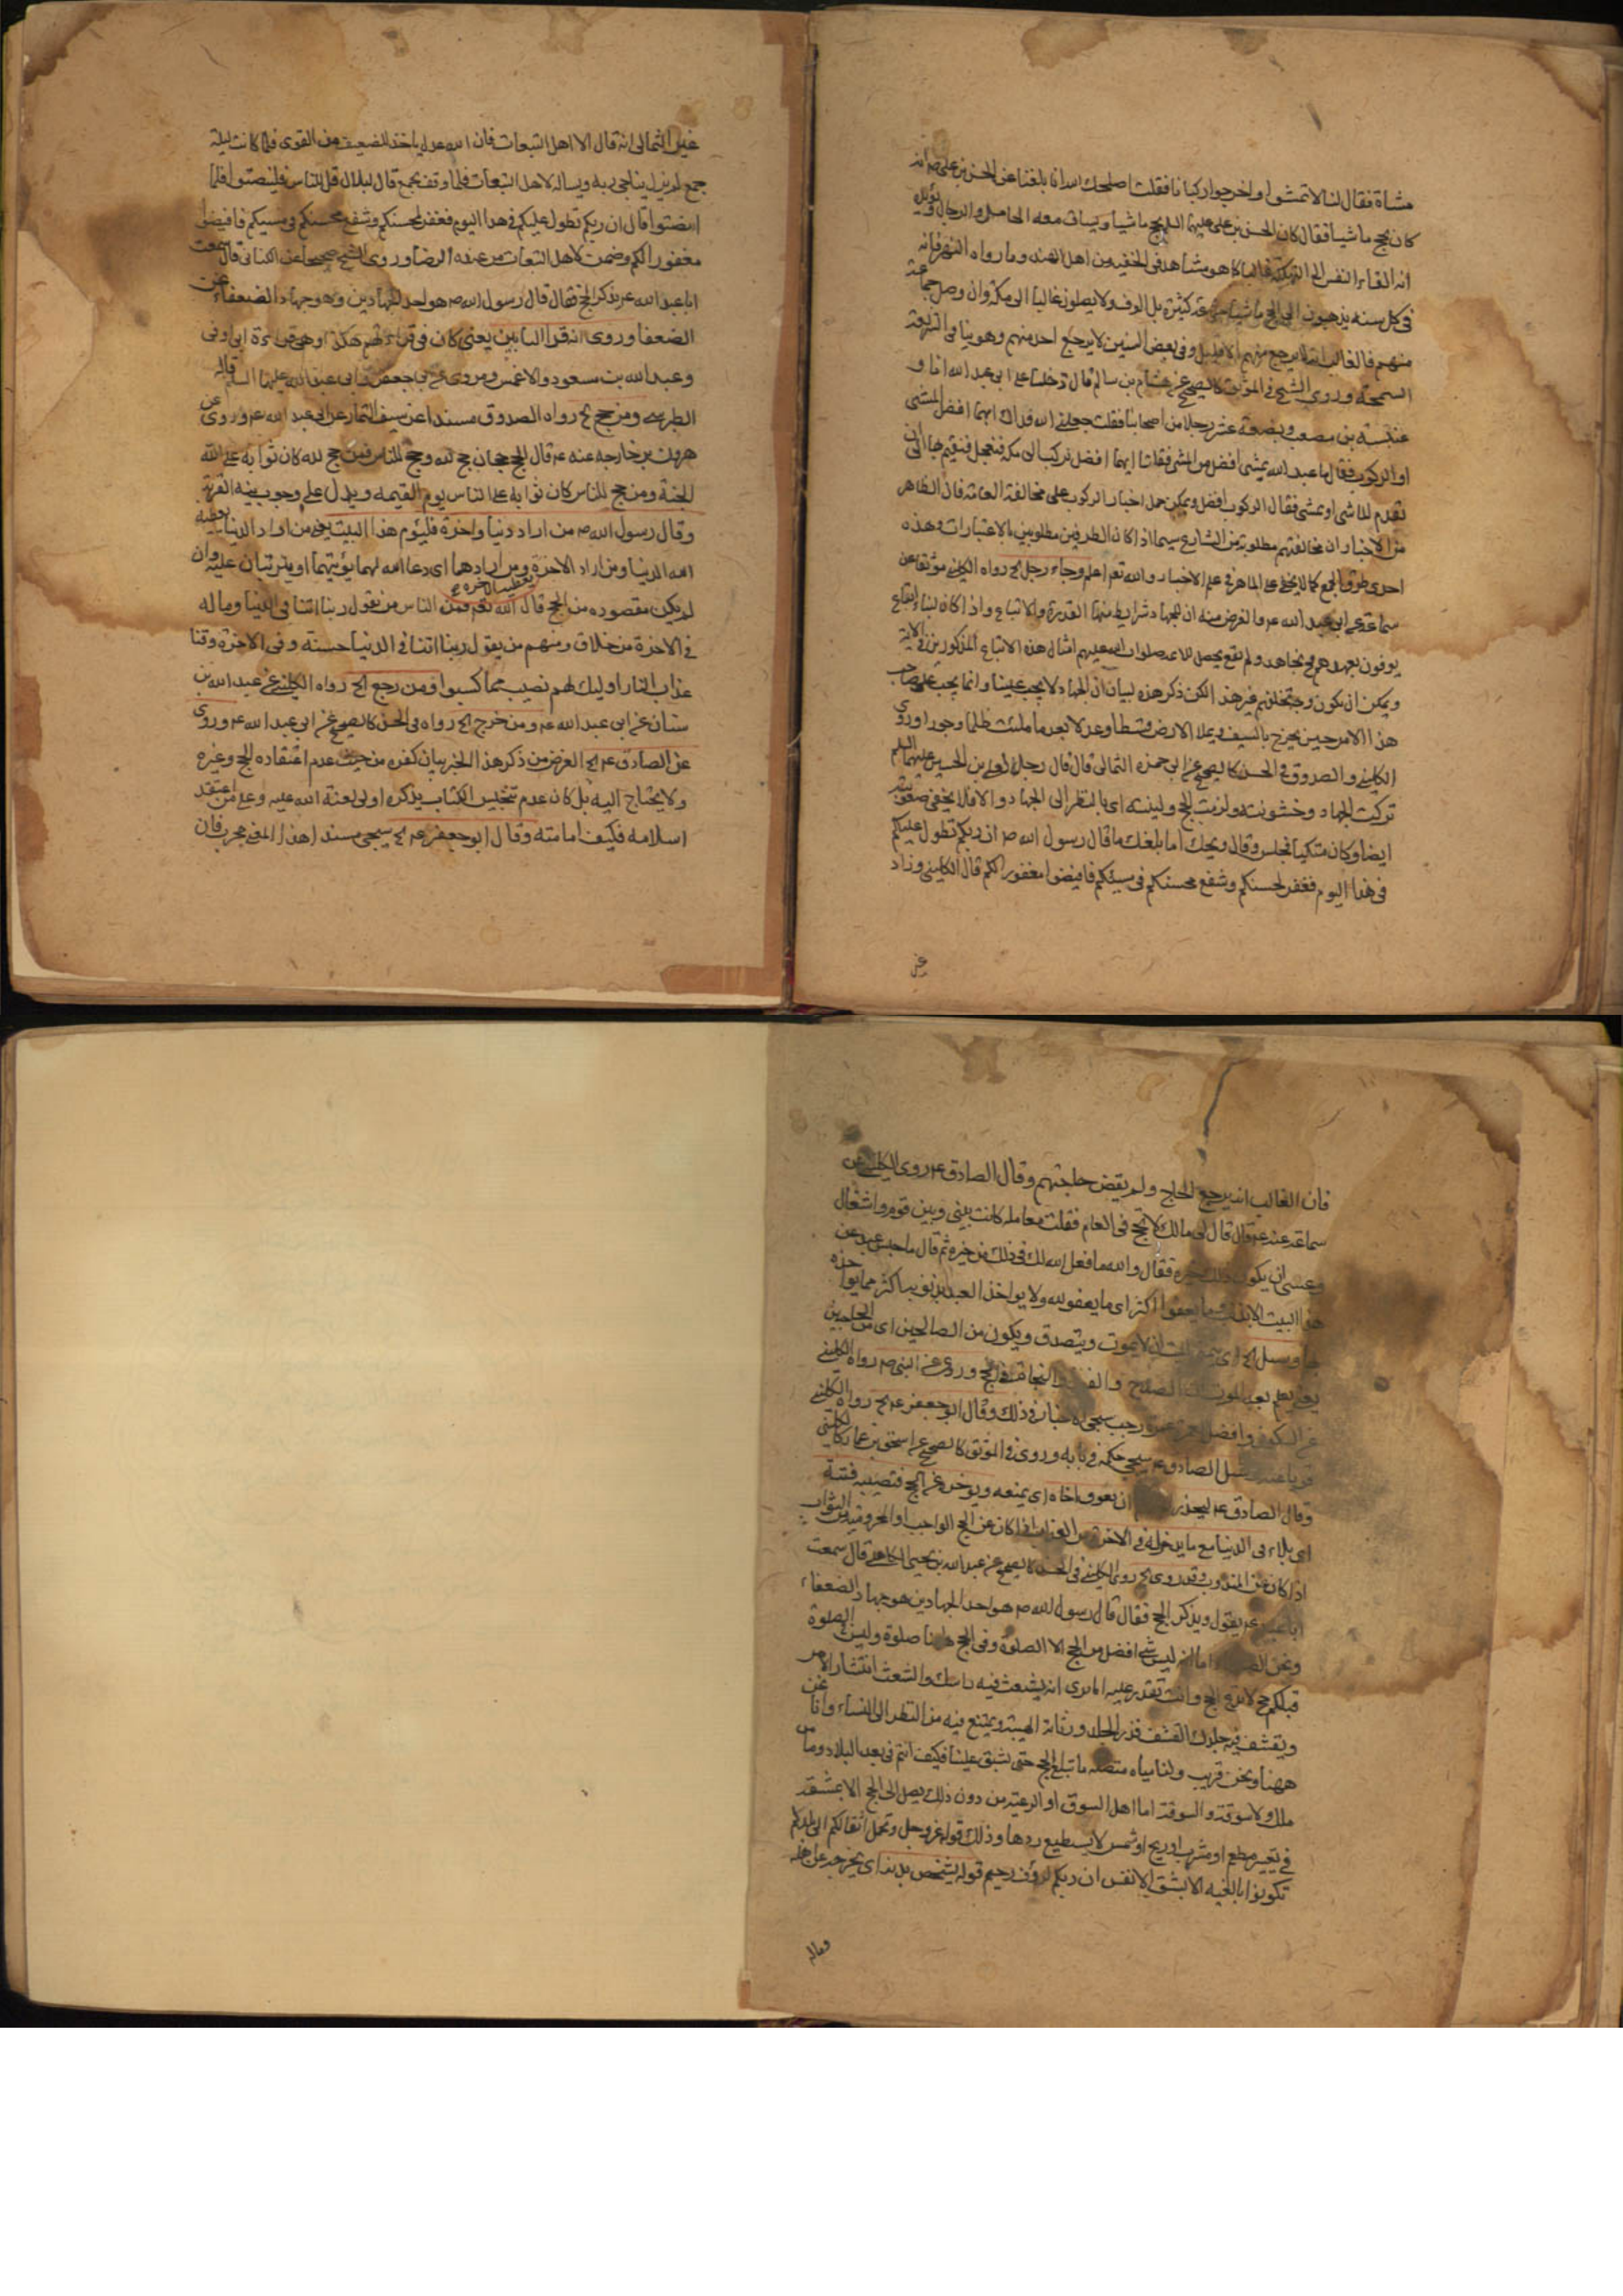 مشاة فقال لنا لا تمشوا واخرجوا ركبانا فقلت اصلحك الله انا بلغنا عن الحسن بن علي ص انه
كان يحج ماشيا فقال كان الحسن بن علي عليهما السلم يحج ماشيا ويساق معه المحامل والرحال
انه القاء النفس الى التهلكة غالبا كما هو مشاهد في الحنفية من اهل الهند وما رواه
في كل سنة يذهبون الى الحج ماشيا كثيرة بل الوف ولا يصلون غالبا الى مكة وان وصل جماعة
منهم فالغالب انه لا يرجع منهم الا قليل وفي بعض السنين لا يرجع احد منهم وهو ينافي الشريعة
السمحة وروى الشيخ في الموثق كالصحيح عن هشام بن سالم قال دخلنا على ابي عبد الله انا و
عنبسة بن مصعب وبضعة عشر رجلا من اصحابنا فقلت جعلني الله فداك ايهما افضل المشي
او الركوب فقال ما عبد الله بشيء افضل من المشي فقلنا ايهما افضل نركب الى مكة فنعجل فنقيم بها الى ان
يقدم الماشي او نمشي فقال الركوب افضل ويمكن حمل اخبار الركوب على مخالفة العامة فان الظاهر
من الاخبار ان مخالفتهم مطلوبة من الشارع سيما اذا كان الطرفين مطلوبين بالاعتبارات وهذه
احدى طرق الجمع كما لا يخفى على الماهر في علم الاخبار والله تعم اعلم وجاء رجل الخ رواه الكليني موثقا عن
سماعة عن ابي عبد الله ع والغرض منه ان للجهاد شرايط منها القدرة والاتباع واذا كان لنا
يوفون بعهدهم نجاهد ولم يقع يحصل للائمة صلوات الله عليهم امثال هذه الاتباع المذكورين في الاية
ويمكن ان يكون وجه تخلفهم غير هذا لكن ذكر هذه لبيان ان الجهاد لا يجب علينا وانما يجب على صاحب
هذا الامر حين يخرج بالسيف ويملا الارض قسطا وعدلا بعد ما ملئت ظلما وجورا وروى
الكليني والصدوق في الحسن كالصحيح عن ابي حمزة الثمالي قال قال رجل لعلي بن الحسين عليهما السلم
تركت الجهاد وخشونته ولزمت الحج ولينته اي بالنظر الى الجهاد والا فلا يخفى صعوبته
ايضا وكان متكيا فجلس وقال ويحك اما بلغك ما قال رسول الله ص ان ربكم تطول عليكم
في هذا اليوم فغفر لمحسنكم وشفع محسنكم في مسيئكم فافيضوا مغفورا لكم قال الكليني وزاد
غير
غير الثمالي انه قال الا اهل التبعات فان الله عدل ياخذ للضعيف من القوى فلما كانت ليلة
جمع لم يزل يناجي ربه ويساله لاهل التبعات فلما وقف بجمع قال لبلال قل للناس فلينصتوا فلما
انصتوا قال ان ربكم تطول عليكم في هذا اليوم فغفر لمحسنكم وشفع محسنكم في مسيئكم فافيضوا
مغفورا لكم وضمن لاهل التبعات من عنده الرضا وروى الشيخ صحيحا عن الكناني قال سمعت
ابا عبد الله ع يذكر الحج فقال قال رسول الله ص هو احد الجهادين وهو جهاد الضعفاء
الضعفا وروى انه قرا التائبين يعني كان في قراءتهم هكذا وهي قراءة ابي
وعبد الله بن مسعود والاعمش ومروى عن ابي جعفر وابي عبد الله عليهما السلم قاله
الطبرسي ومن حج الخ رواه الصدوق مسندا عن سيف التمار عن ابي عبد الله ع وروى عن
هرون بن خارجة عنه ع قال الحج حجان حج لله وحج للناس فمن حج لله كان ثوابه على الله
الجنة ومن حج للناس كان ثوابه على الناس يوم القيمة ويدل على وجوب نية القربة
وقال رسول الله ص من اراد دنيا واخرة فليؤم هذا البيت يعني من اراد الدنيا يعطيه
الله الدنيا ومن اراد الاخرة يعطيه الاخرة ومن ارادهما اي دعا الله لهما يؤتيهما او يترتبان عليه وان
لم يكن مقصوده من الحج قال الله تعم فمن الناس من يقول ربنا اتنا في الدنيا وما له
في الاخرة من خلاق ومنهم من يقول ربنا اتنا في الدنيا حسنة وفي الاخرة وقنا
عذاب النار اوليك لهم نصيب مما كسبوا ومن رجع الخ رواه الكليني عن عبد الله بن
سنان عن ابي عبد الله ع ومن خرج الخ رواه في الحسن كالصحيح عن ابي عبد الله ع وروى
عن الصادق ع الخ الغرض من ذكر هذا الخبر بيان كفره من حيث عدم اعتقاده الحج وغيره
ولا يحتاج اليه بل كان عدم تنجيس الكتاب بذكره اولى لعنة الله عليه وعلى من اعتقد
اسلامه فكيف امامته وقال ابو جعفر ع الخ سيجي مسندا هذا المعنى مجرب فان
فان الغالب انه يرجع الحاج ولم يقض حاجتهم وقال الصادق ع روى الكليني عن
سماعة عنه ع قال قال لي مالك لا تحج في العام فقلت معاملة كانت بيني وبين قوم واشغال
وعسى ان يكون ذلك خيرة فقال والله ما فعل الله لك في ذلك من خيرة ثم قال ما حبس عبد عن
هذا البيت الا بذنب وما يعفو اكثر اي ما يعفو الله ولا يواخذ العبد بذنوبه اكثر مما يواخذه
بها وسئل الخ اي ان لا يموت ويتصدق ويكون من الصالحين اي من الحاجين
بعد الموت والنجاة في الحج وروى عن النبي ص رواه الكليني
عن السكوني وافضل عمرة رجب سيجي الاخبار في ذلك وقال ابو جعفر ع الخ رواه الكليني
الصادق ع سيجي حكمه في بابه وروى في الموثق كالصحيح عن اسحق بن عمار
وقال الصادق ع ليحذر ان يعوق اخاه اي يمنعه ويوخره عن الحج فتصيبه فتنة
اي بلاء في الدنيا مع ما يدخر له في الاخرة من العذاب اذا كان عن الحج الواجب او الحرومية من الثواب
اذا كان عن المندوب وقد روى الخ روى الكليني في الحسن كالصحيح عن عبد الله بن يحيى الكاهلي قال سمعت
ابا عبد الله ع يقول ويذكر الحج فقال قال رسول الله ص هو احد الجهادين هو جهاد الضعفاء
ونحن الضعفاء اما انه ليس شي افضل من الحج الا الصلوة وفي الحج هاهنا صلوة وليس في الصلوة
قبلكم حج لا تدع الحج وانت تقدر عليه اما ترى انه يشعث فيه راسك والشعث انتشار الامر
ويقشف فيه جلدك القشف قذر الجلد ورثاثة الهيئة ويمتنع فيه من النظر الى النساء وانا نحن
ههنا ونحن قريب ولنا مياه متصلة ما نبلغ الحج حتى يشق علينا فكيف انتم في بعد البلاد وما من
ملك ولا سوقة والسوقة اما اهل السوق او الرعية من دون ذلك يصل الى الحج الا بمشقة
في تغيير مطعم او مشرب او ريح او شمس لا يستطيع ردها وذلك قوله عز وجل وتحمل اثقالكم الى بلد لم
تكونوا بالغيه الا بشق الانفس ان ربكم لرؤف رحيم قوله يشخص بدنه اي يخرجه عن
وماله